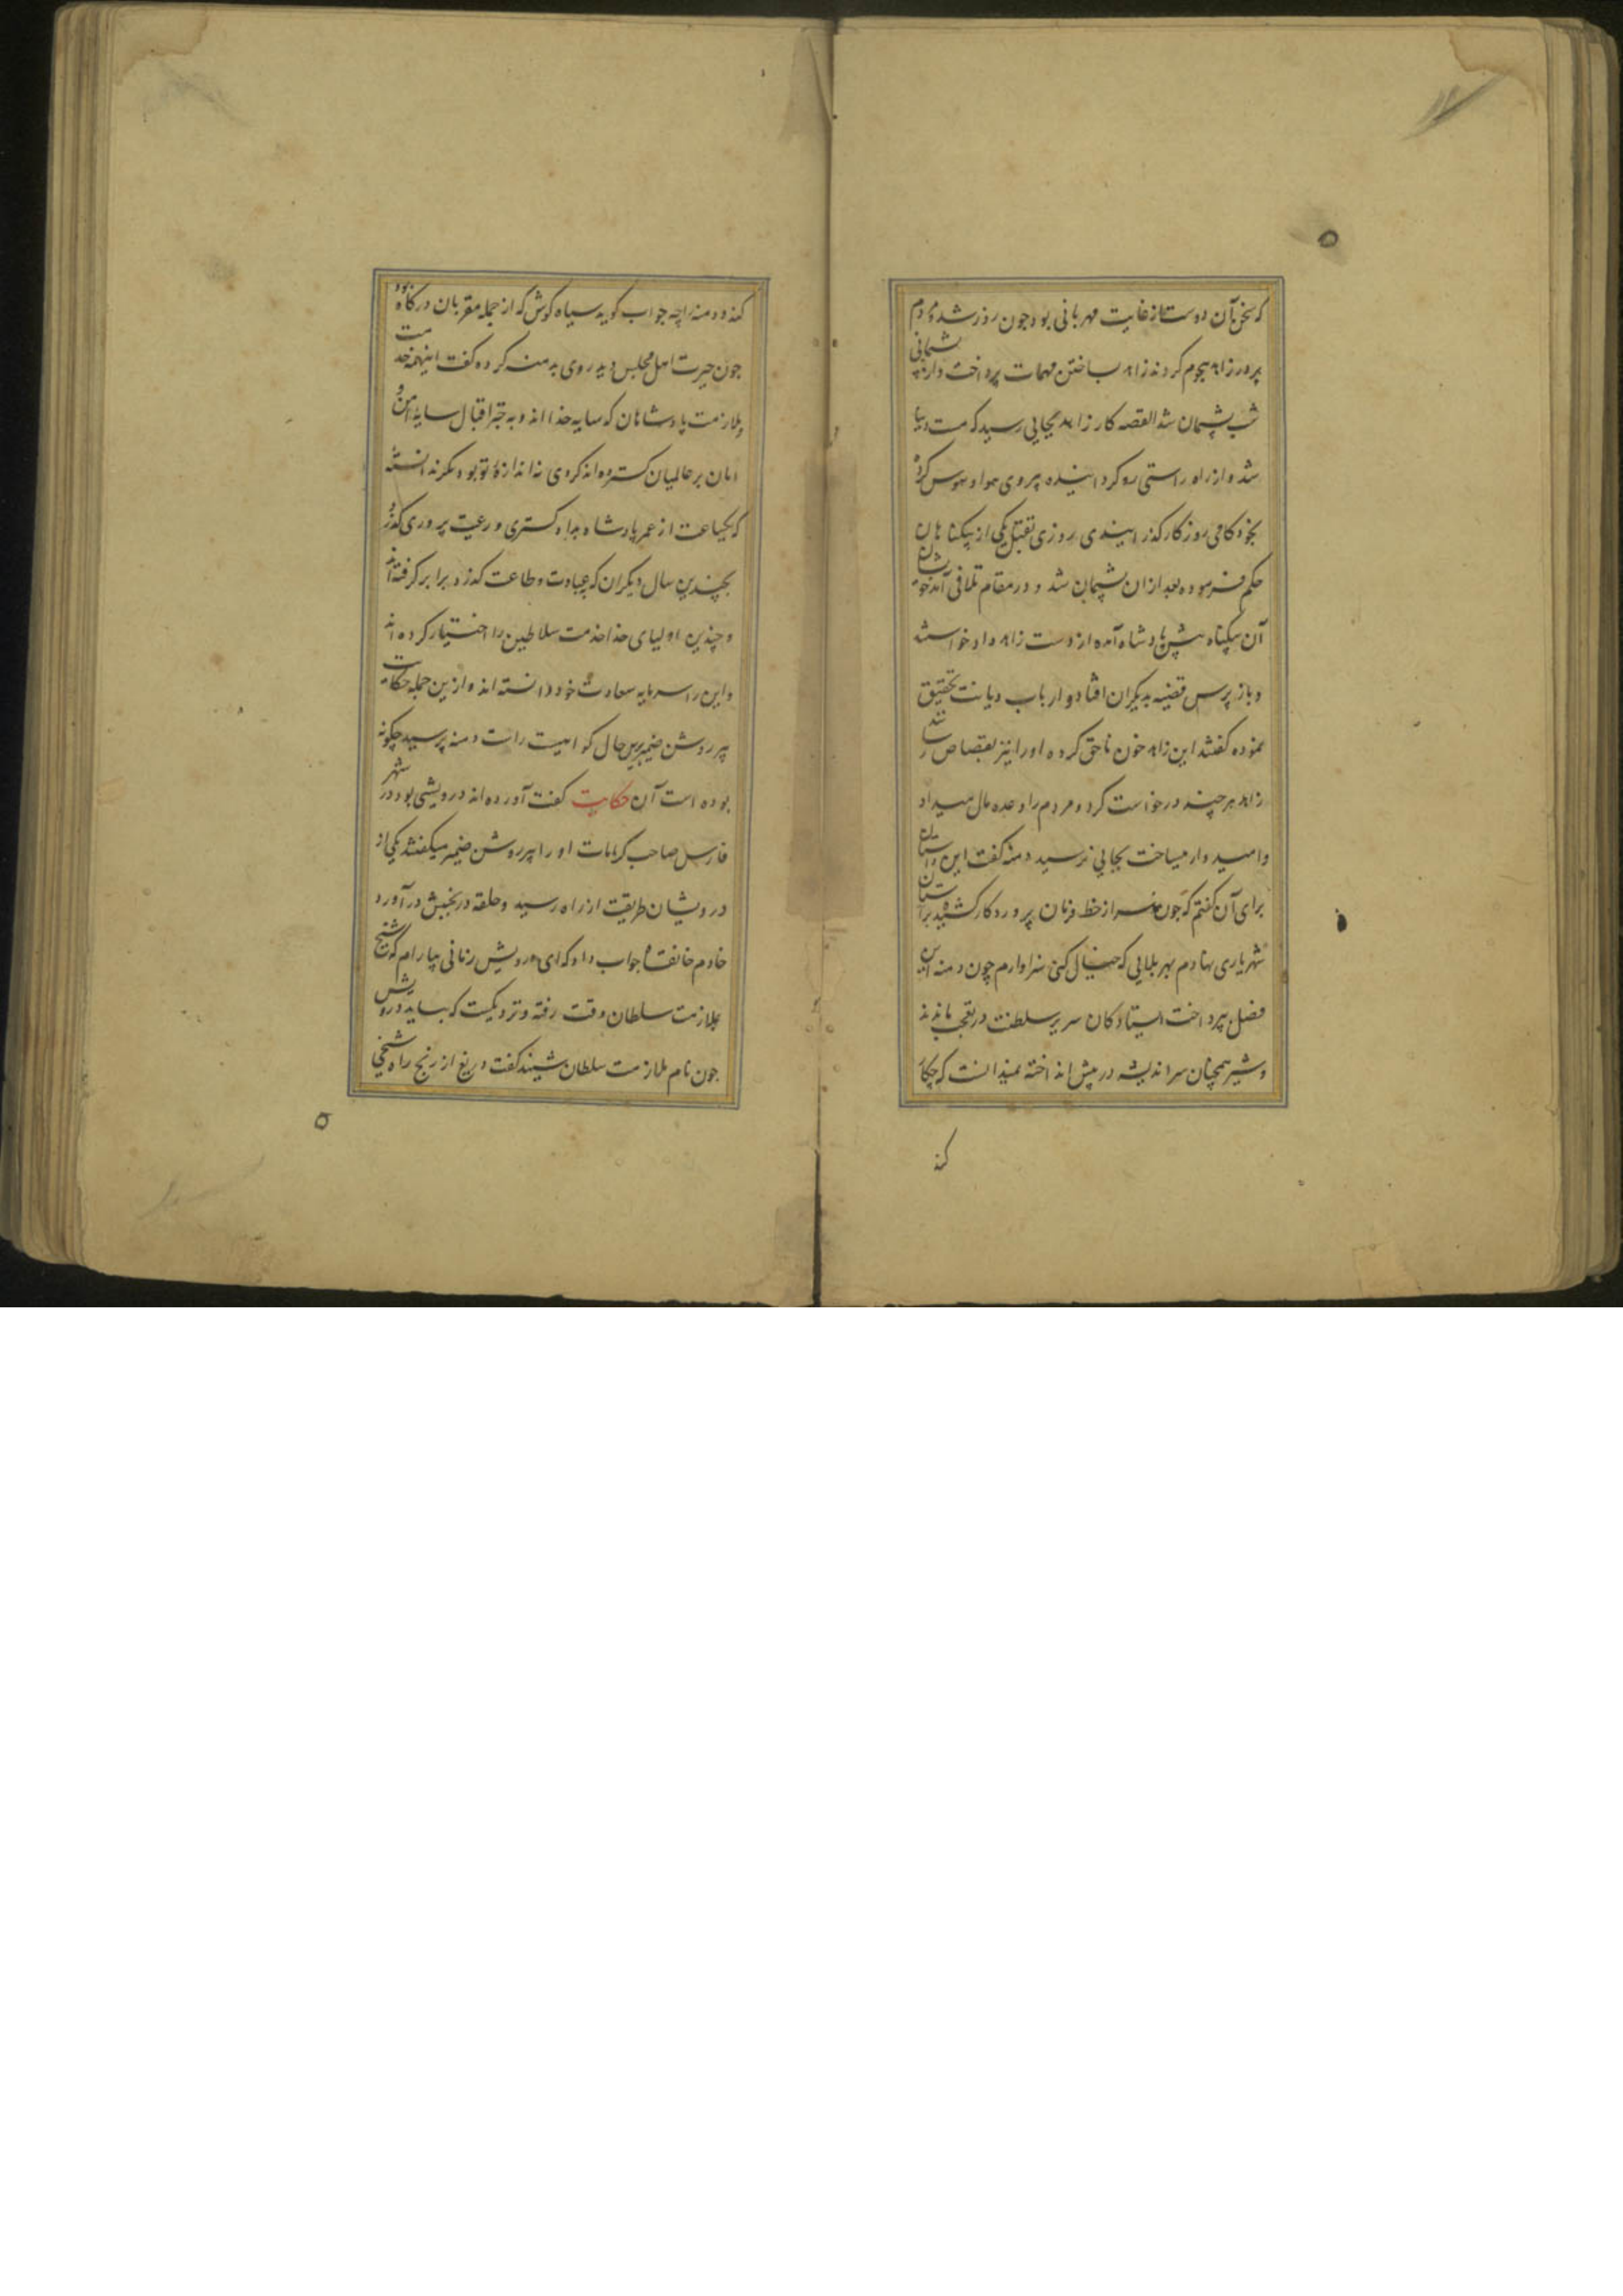 که سخن آن دوست از غایت مهربانی بود جون روز شد مردم
بر در زاهد هجوم کردند زاهد بساختن مهمات پرداخت و از پشیمانی
شب پشیمان شد القصه کار زاهد بجایی رسید که مست دنیا
شد و از راه راستی رو کردانیده پیروی هوا و هوس کرده
بخودکامی روزکار کذرانیدی روزی بقتل یکی از بیکناهان
حکم فرموده بعد از ان پشیمان شد و در مقام تلافی آمد خویشان
آن بیکناه پیش پادشاه آمده از دست زاهد داد خواستند
و باز پرس قضیه بدیکران افتاد و ارباب دیانت تحقیق
نموده کفتند این زاهد خون ناحق کرده او را نیز بقصاص رسانند
زاهد هر چند درخواست کرد و مردم را وعده مال میداد
و امیدوار میساخت بجایی نرسید دمنه کفت این داستان
برای آن کفتم که جون من سر از خط فرمان پروردکار کشیده بر آستان
شهریاری نهادم بهر بلایی که خیال کنی سزاوارم چون دمنه این
فصل بپرداخت ایستادکان سریر سلطنت در تعجب ماندند
و شیر همچنان سر اندیشه در پیش انداخته نمیدانست که چکار
کند
کند و دمنه را چه جواب کوید سیاه کوش که از جمله مقربان درکاه بود
جون حیرت اهل مجلس دید روی بدمنه کرده کفت اینهمه خدمت
و ملازمت پادشاهان که سایه خدا اند و به چتر اقبال سایه امن و
امان بر عالمیان کسترده اند کردی نه اندازه تو بود مکر ندانسته
که یکساعت از عمر پادشاه بدادکستری و رعیت پروری کذرد
بچندین سال دیکران که بعبادت و طاعت کذرد برابر کرفته اند
و چندین اولیای خدا خدمت سلاطین را اختیار کرده اند
و این را سرمایه سعادت خود دانسته اند و ازین جمله حکایت
پیر روشن ضمیر برین حال کواهیست راست دمنه پرسید چکونه
بوده است آن حکایت کفت آورده اند درویشی بود در شهر
فارس صاحب کرامات او را پیر روشن ضمیر میکفتند یکی از
درویشان طریقت از راه رسید و حلقه در بجنبش درآورد
خادم خانقاه جواب داد که ای درویش زمانی بیارام که شیخ
بملازمت سلطان وقت رفته و نزدیکست که بیاید درویش
جون نام ملازمت سلطان شنید کفت دریغ از رنج راه شیخی